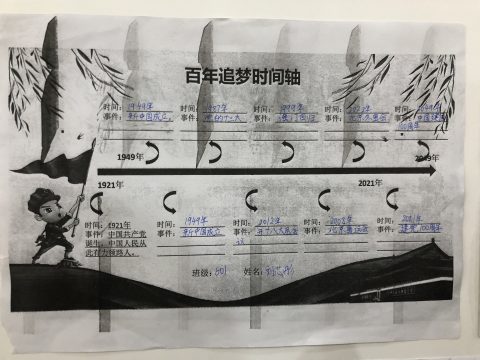 百年追梦时间轴
时间：1949年 时间：1987年 时间：1999年 时间： 时间：2049年
事件：新中国成立 事件： 事件：澳门回归 事件： 事件：
100周年
1949年 2049年
1921年 2021年
时间：1921年 时间：1949年 时间：2012年 时间：2008年 时间：2021年
事件：中国共产党 事件：新中国成立 事件： 事件：北京奥运会 事件：建党100周年
诞生，中国人民从
此有力领路人。
班级：601 姓名：